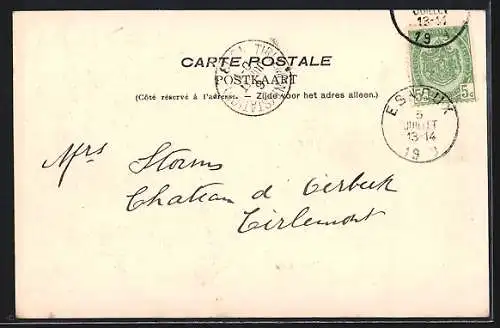 JUILLET
13-14
19
CARTE POSTALE
POSTKAART
(Côté réservé à l'adresse. — Zijde voor het adres alleen.)
5c
5
JUILLET
13-14
19
Mrs Storms
Chateau d'Oirbeek
Tirlemont